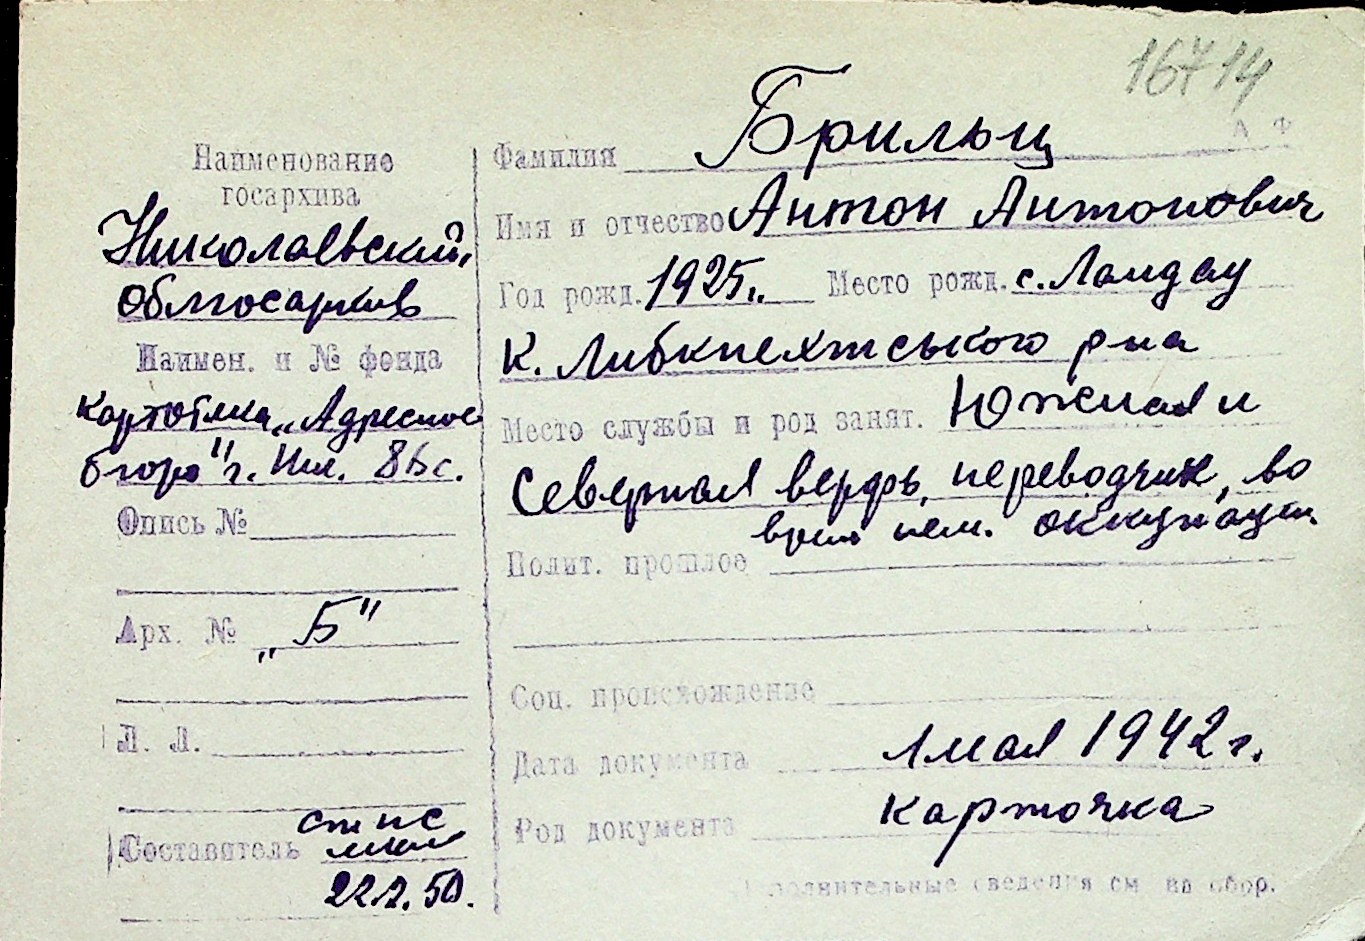 16714
А Ф
Наименование
госархива
Николаевский
облгосархив
Наимен. и № фонда
картотека „Адресное
бюро" г. Ник. 86с.
Опись №
Арх. № „Б"
Л. Л.
Составитель
22.2.50.
Фамилия Брильц
Имя и отчество Антон Антонович
Год рожд. 1925г. Место рожд. с. Ландау
К. Либкнехтського р-на
Место службы и род занят. Южная и
Северная верфь, переводчик, во
время нем. оккупации
Полит. прошлое
Соц. происхождение
Дата документа 1 мая 1942 г.
Род документа карточка
Дополнительные сведения см на обор.